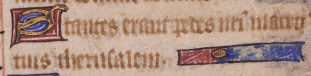 Stantes erant pedes nri in atrijs
tuis iherusalem.